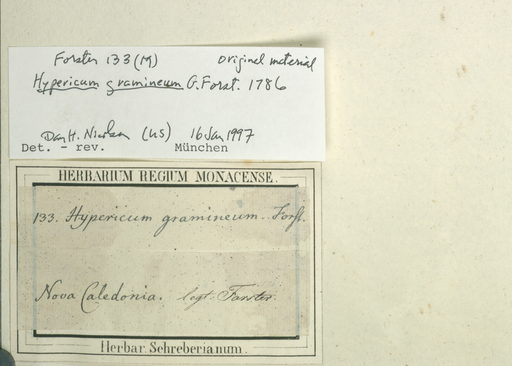 Forster 133 (M) original material
Hypericum gramineum G. Forst. 1786
Dan H. Nicolson (US) 16 Jan 1997
Det. - rev. München
HERBARIUM REGIUM MONACENSE.
133. Hypericum gramineum. Forst.
Nova Caledonia. legt. Forster.
Herbar. Schreberianum.